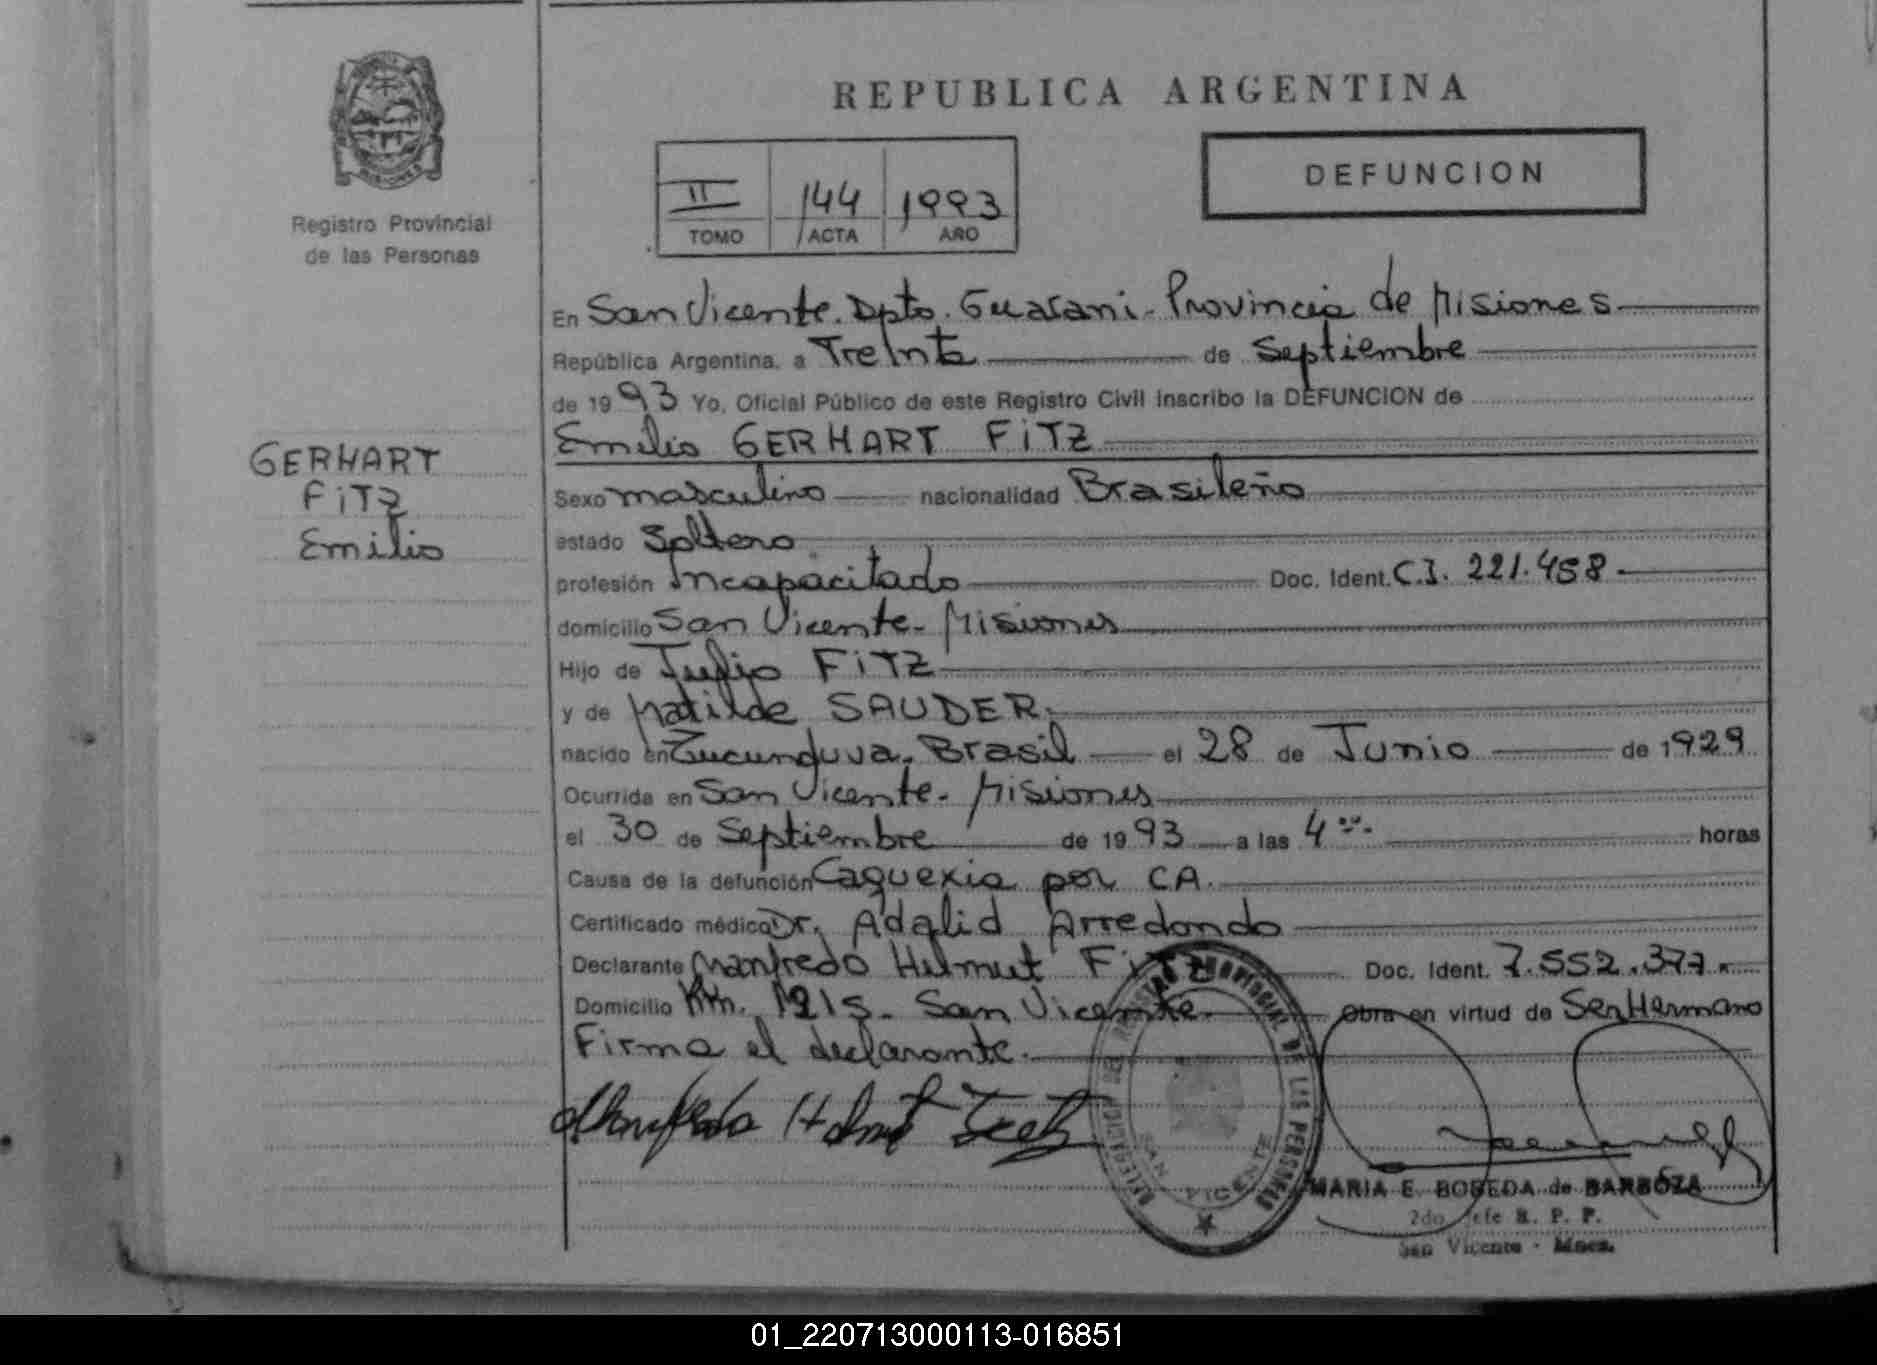 REPUBLICA ARGENTINA
DEFUNCION
II 144 1993
TOMO ACTA AÑO
MISIONES
Registro Provincial
de las Personas
En San Vicente. Dpto. Guarani. Provincia de Misiones
República Argentina, a Treinta de Septiembre
de 1993 Yo, Oficial Público de este Registro Civil inscribo la DEFUNCION de
Emilio GERHART FITZ
GERHART
FITZ
Emilio
Sexo masculino nacionalidad Brasileño
estado Soltero
profesión Incapacitado Doc. Ident. C.I. 221.458.
domicilio San Vicente - Misiones
Hijo de Julio FITZ
y de Matilde SAUDER.
nacido en Tucunduva. Brasil el 28 de Junio de 1929
Ocurrida en San Vicente - Misiones
el 30 de Septiembre de 1993 a las 4 horas
Causa de la defunción Caquexia por CA.
Certificado médico Dr. Adalid Arredondo
Declarante Manfredo Helmut FITZ Doc. Ident. 7.552.377.
Domicilio Km. 1215 - San Vicente. Obra en virtud de Ser Hermano
Firma el declarante.
REGISTRO PROVINCIAL DE LAS PERSONAS
DELEGACION
SAN VICENTE
MARIA E. BOBEDA de BARBOZA
2do Jefe R. P. P.
San Vicente - Mnes.
01_220713000113-016851